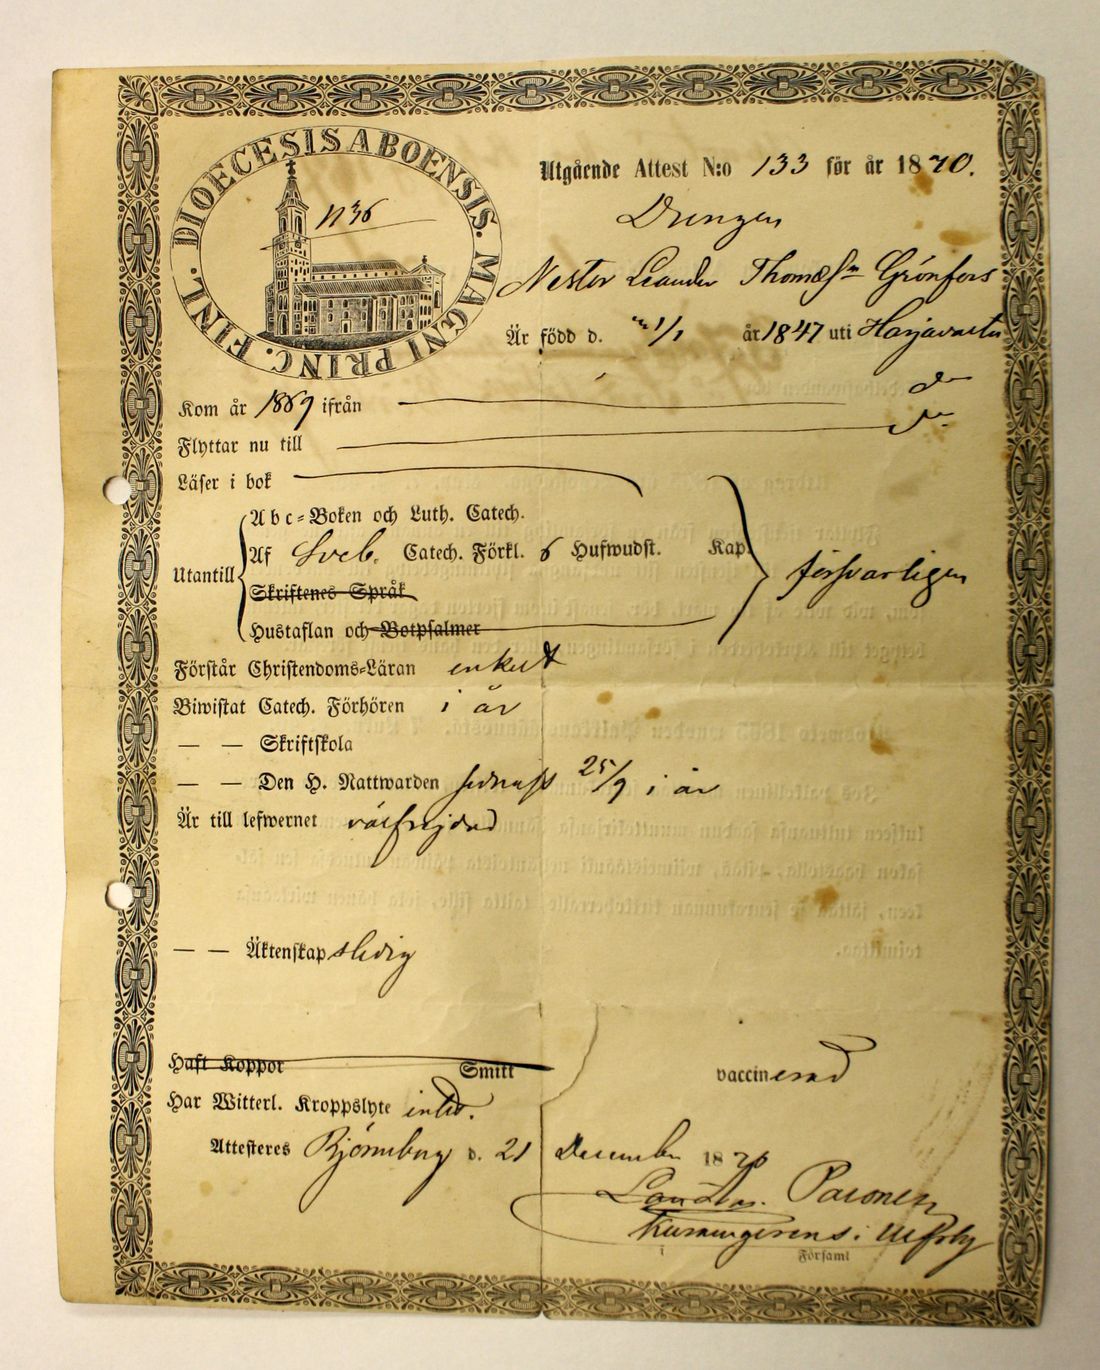 DIOECESIS ABOENSIS. MAGNI PRINC. FINL.
N 36
Utgående Attest N:o 133 för år 1870.
Drengen
Nestor Leander Thomæsn Grönfors
Är född d. 1/1 år 1847 uti Harjavalta
Kom år 1869 ifrån
Flyttar nu till
Läser i bok
Abc-Boken och Luth. Catech.
Utantill Af Sveb. Catech. Förkl. 6 Hufwudst. Kap. försvarligen
Skriftenes Språk
Hustaflan och Botpsalmer
Förstår Christendoms-Läran enkelt
Biwistat Catech. Förhören i år
— — Skriftskola
— — Den H. Nattwarden sednast 25/9 i år
Är till lefwernet välfrejdad
— — Äktenskap ledig
Haft Koppor Smitt vaccinerad
Har Witterl. Kroppslyte intet.
Attesteres Björneborg d. 21 December 1870
i Församl